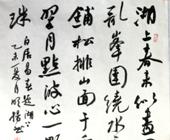 湖上春来似画
乱峯围绕水
铺松排山面千
翠月點波心一
珠
白居易春题湖上
乙未夏月明